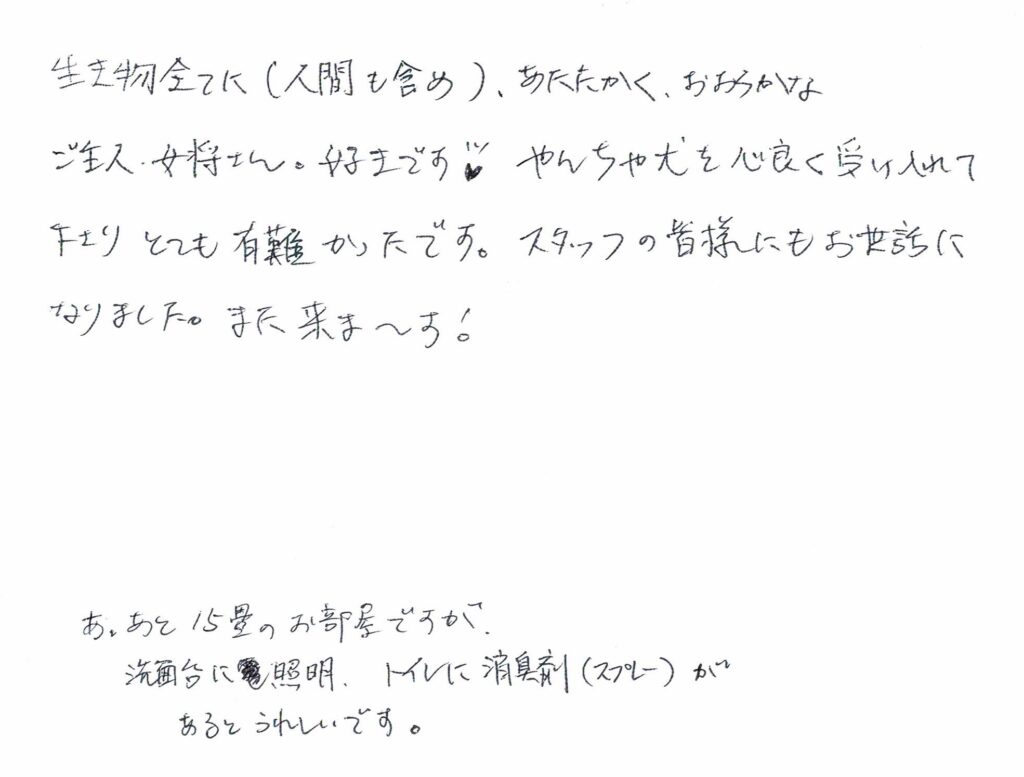 生き物全てに(人間も含め)、あたたかく、おおらかな
ご主人・女将さん。好きです♥ やんちゃ犬を心良く受け入れて
下さり とても有難かったです。スタッフの皆様にもお世話に
なりました。また来ま〜す!
あ、あと15畳のお部屋ですが、
洗面台に照明、トイレに消臭剤(スプレー)が
あるとうれしいです。